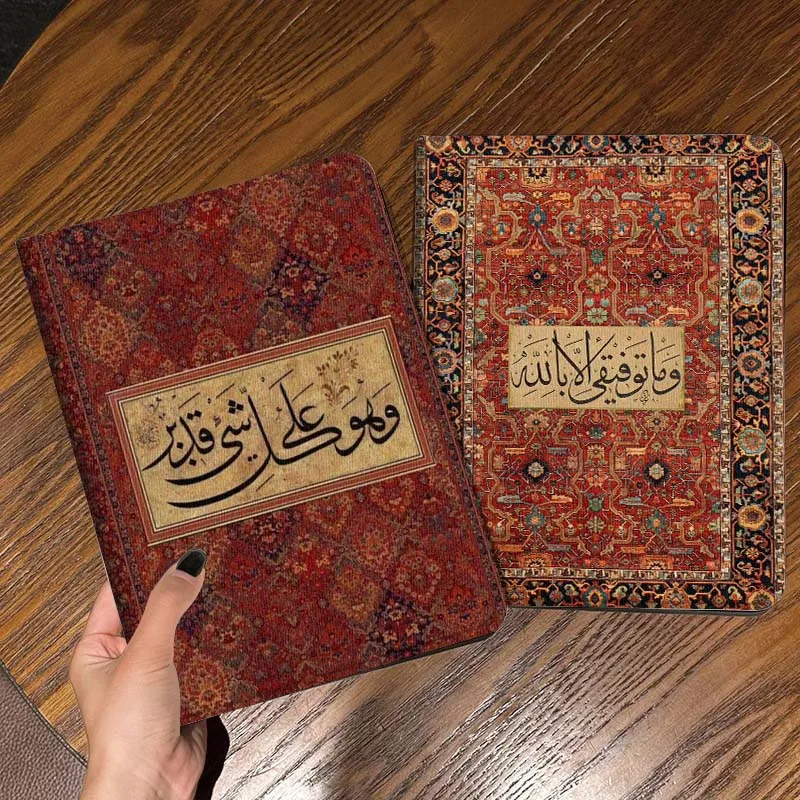 وَهُوَ عَلَى كُلِّ شَىْءٍ قَدِيرٌ
وَمَا تَوْفِيقِى إِلَّا بِاللّٰهِ